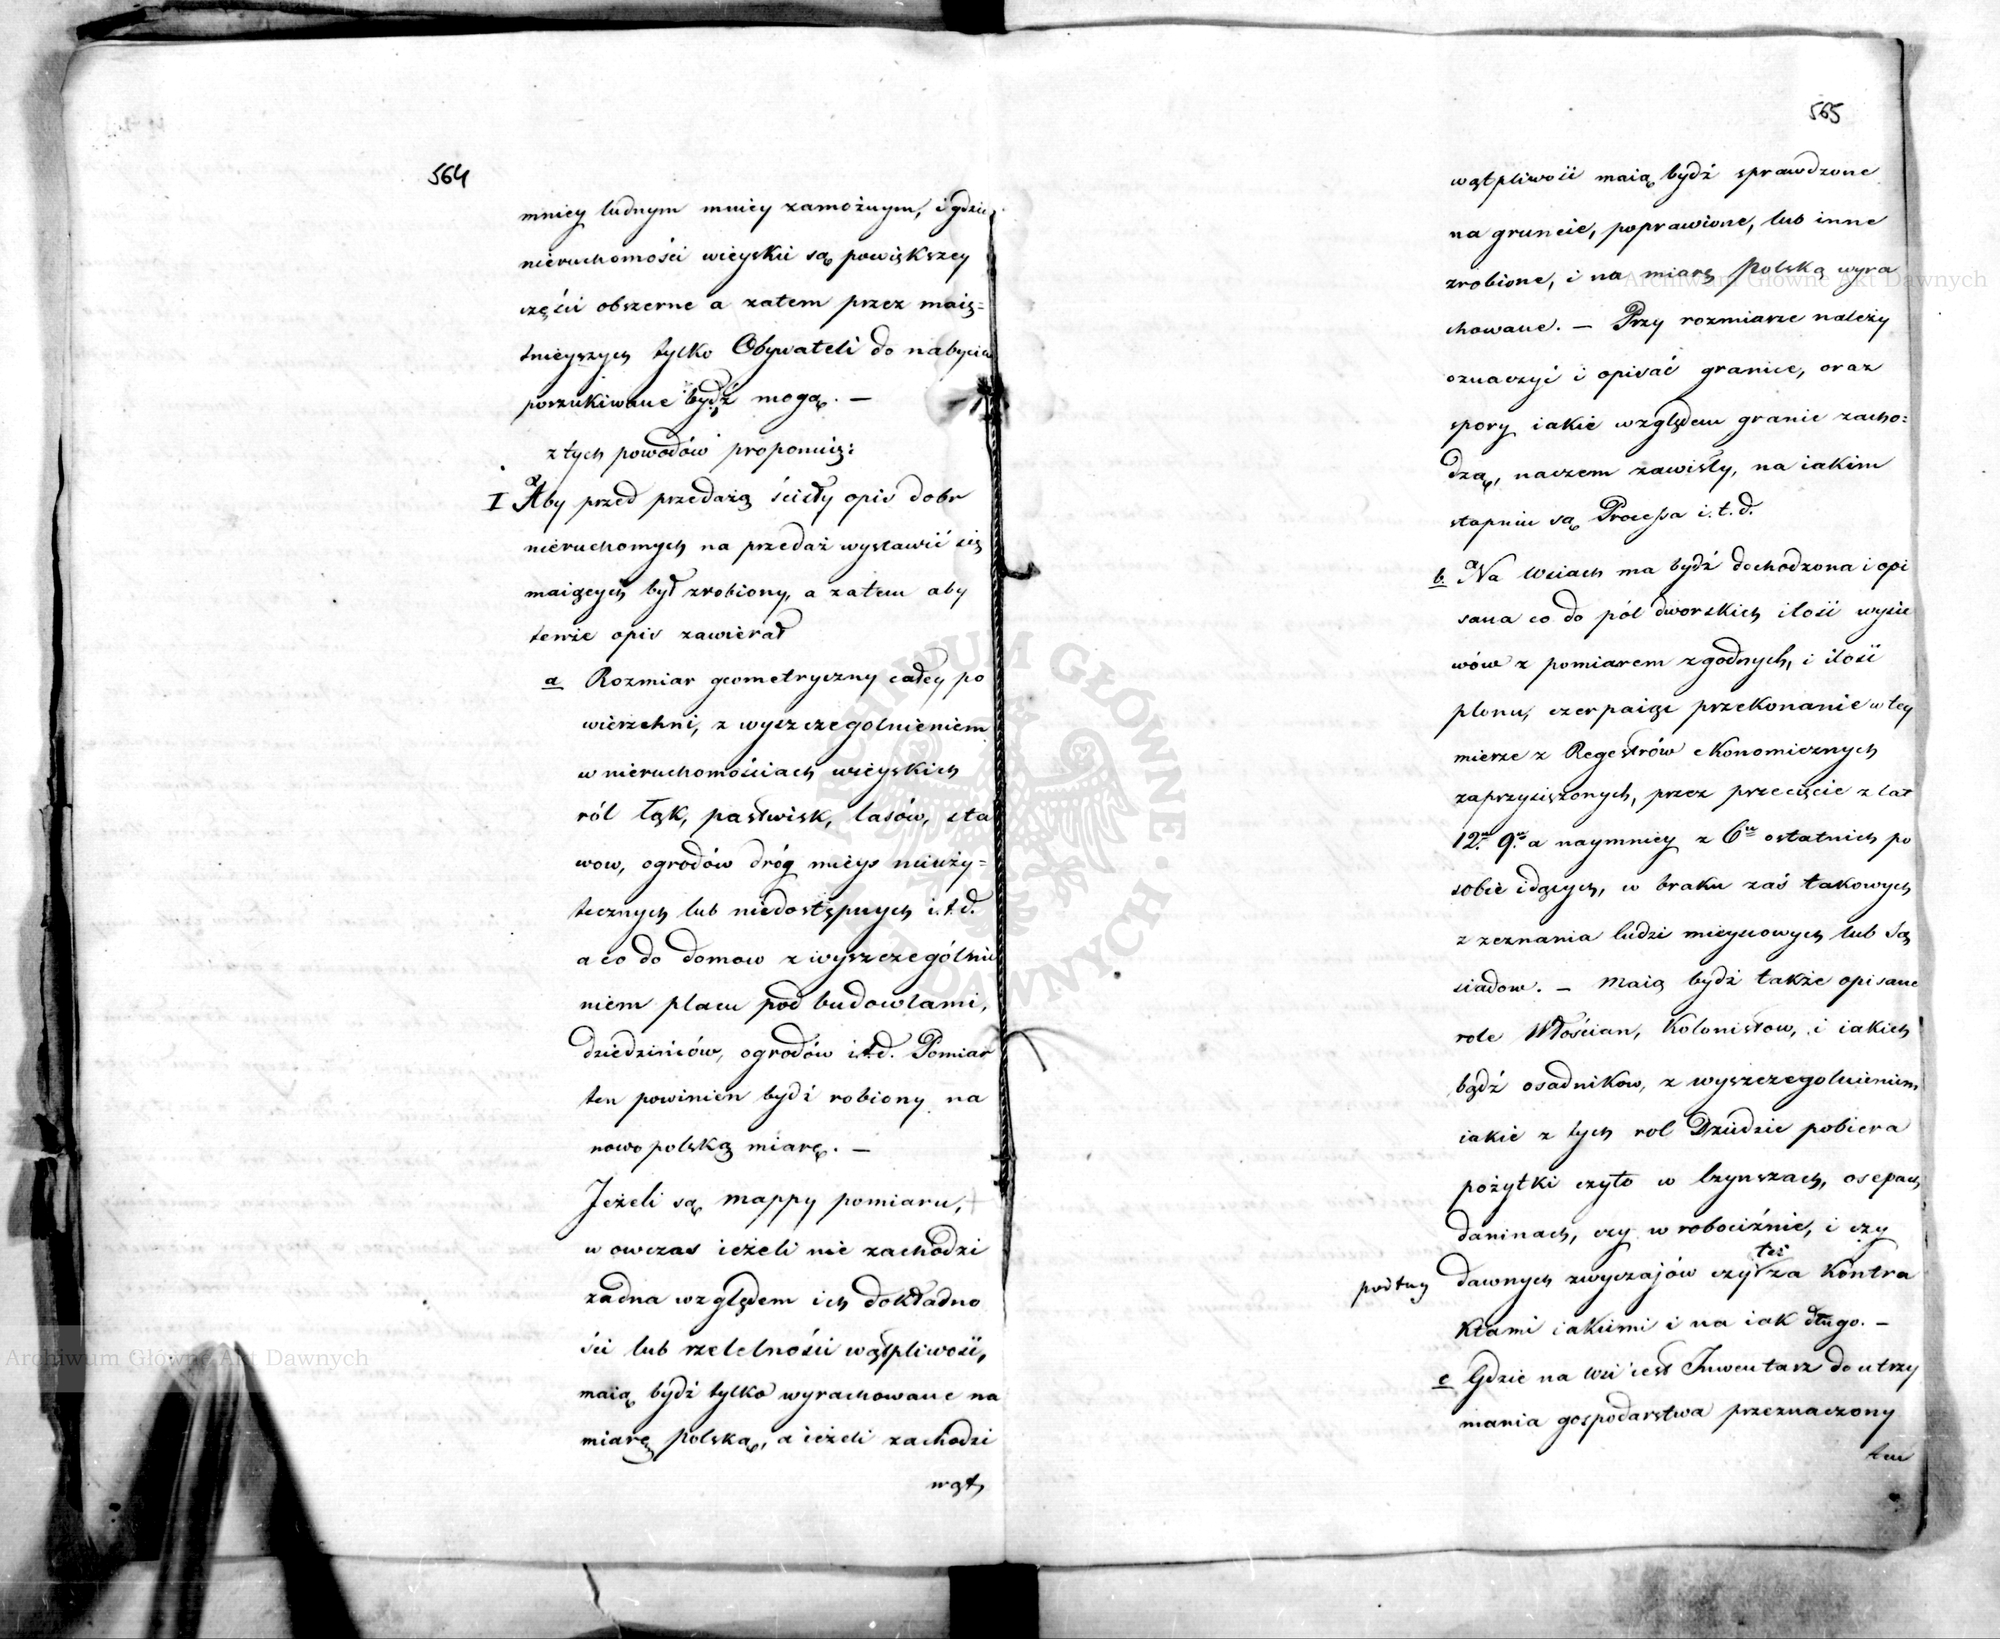 564
mniey ludnym mniey zamożnym, i gdzie
nieruchomości wieyskie są powiększey
części obszerne a zatem przez maię=
tnieyszych tylko Obywateli do nabycia
poszukiwane bydź mogą. —
z tych powodów proponuię:
I Aby przed przedażą ścisły opis dobr
nieruchomych na przedaż wystawić się
maiących był zrobiony, a zatem aby
tenże opis zawierał
a Rozmiar geometryczny całey po
wierzchni, z wyszczegolnieniem
w nieruchomościach wieyskich
ról łąk, pastwisk, lasów, sta
wow, ogrodów dróg mieys nieuży=
tecznych lub niedostępnych i.t.d.
a co do domow z wyszczególnie
niem placu pod budowlami,
dziedzińców, ogrodów i.t.d. Pomiar
ten powinien bydź robiony na
nowo polską miarę. —
Jeżeli są mappy pomiaru,
w owczas ieżeli nie zachodzi
żadna względem ich dokładno
ści lub rzetelności wątpliwość,
maią bydź tylko wyrachowane na
miarę polską, a ieżeli zachodzi
wąt
565
wątpliwość maią bydź sprawdzone
na gruncie, poprawione, lub inne
zrobione, i na miarę Polską wyra
chowane. — Przy rozmiarze należy
oznaczyć i opisać granice, oraz
spory iakie względem granic zacho=
dzą, naczem zawisły, na iakim
stopniu są Processa i.t.d.
b. Na Wsiach ma bydź dochodzona i opi
sana co do pól dworskich ilość wysie
wów z pomiarem zgodnych, i ilość
plonu, czerpaiąc przekonanie w tey
mierze z Regestrów ekonomicznych
zaprzysiężonych, przez przecięcie z lat
12. 9. a naymniey z 6 ostatnich po
sobie idących, w braku zaś takowych
z zeznania ludzi mieyscowych lub Są
siadow. — Maią bydź także opisane
role Włościan, Kolonistow, i iakich
bądź osadnikow, z wyszczegolnieniem
iakie z tych rol Dziedzic pobiera
pożytki czyto w Czynszach, osepach
daninach, czy w robociźnie, i czy
podług dawnych zwyczajów czy też za Kontra
ktami iakiemi i na iak długo. —
c Gdzie na wsi iest Inwentarz do utrzy
mania gospodarstwa przeznaczony
ten
Archiwum Główne Akt Dawnych
Archiwum Główne Akt Dawnych
ARCHIWUM GŁÓWNE AKT DAWNYCH